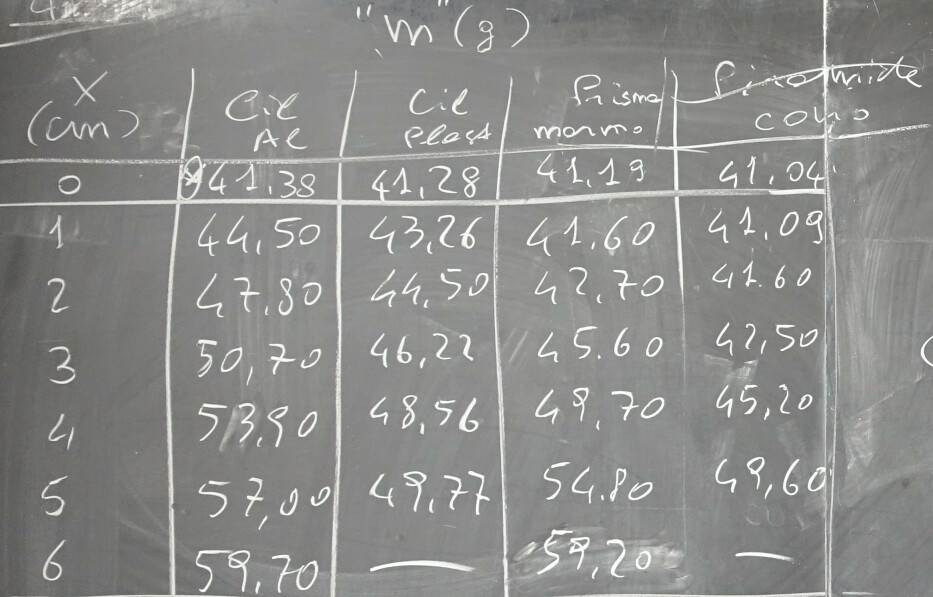 "m"(g)
X (cm) Cil Al Cil Plast Prisma marmo cono
0 41,38 41,28 41,19 41,04
1 44,50 43,26 41,60 41,09
2 47,80 44,50 42,70 41.60
3 50,70 46,22 45.60 42,50
4 53,90 48,56 49,70 45,20
5 57,00 49,77 54.80 49,60
6 59,70 — 59,20 —